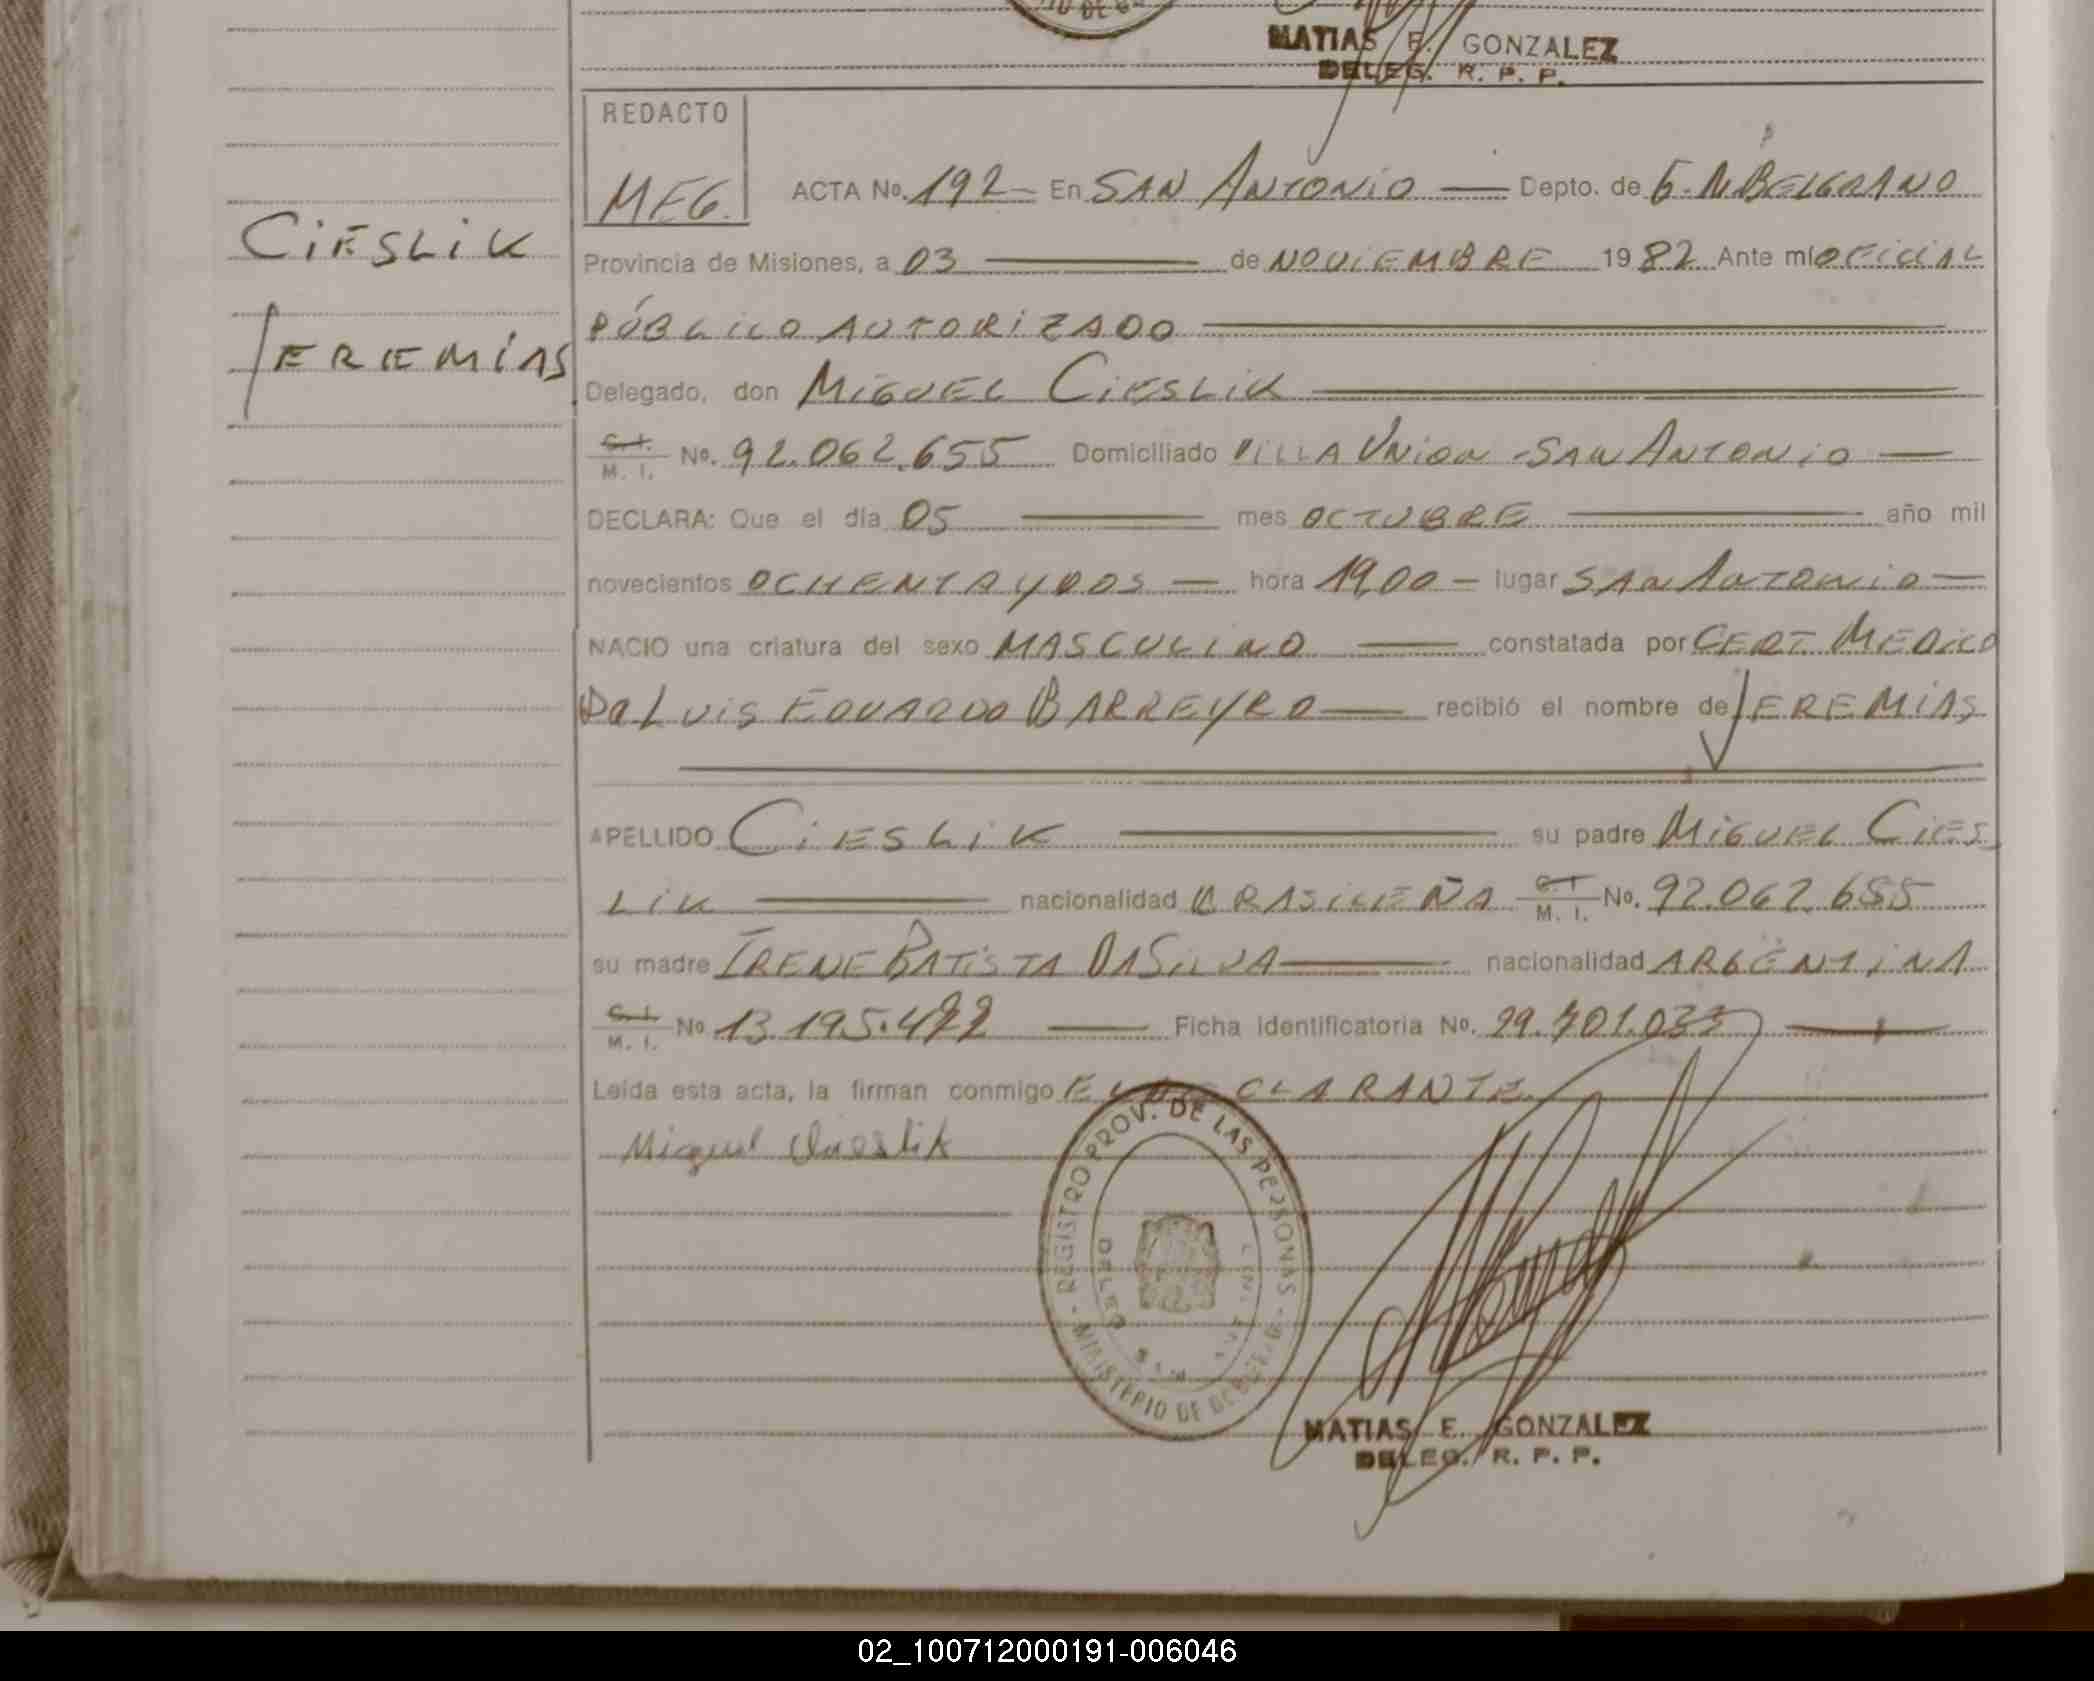 MATIAS E. GONZALEZ
DELEG. R. P. P.
REDACTO
MEG.
ACTA No. 192 En SAN ANTONIO Depto. de G. M. BELGRANO
CIESLIK
Provincia de Misiones, a 03 de NOVIEMBRE 1982 Ante mí OFICIAL
PÚBLICO AUTORIZADO
JEREMIAS
Delegado, don MIGUEL CIESLIK
C. I. M. I. No. 92.062.655 Domiciliado VILLA UNION - SAN ANTONIO
DECLARA: Que el día 05 mes OCTUBRE año mil
novecientos OCHENTA Y DOS hora 19,00 lugar SAN ANTONIO
NACIO una criatura del sexo MASCULINO constatada por CERT MEDICO
DR LUIS EDUARDO BARREYRO recibió el nombre de JEREMIAS
APELLIDO CIESLIK su padre MIGUEL CIES
LIK nacionalidad BRASILEÑA C. I. M. I. No. 92.062.655
su madre IRENE BATISTA DA SILVA nacionalidad ARGENTINA
C. I. M. I. No 13.195.422 Ficha identificatoria No. 29.701.033
Leída esta acta, la firman conmigo EL DECLARANTE
Miguel Cieslik
REGISTRO PROV. DE LAS PERSONAS
MINISTERIO DE GOBIERNO
MATIAS E. GONZALEZ
DELEG. R. P. P.
02_100712000191-006046